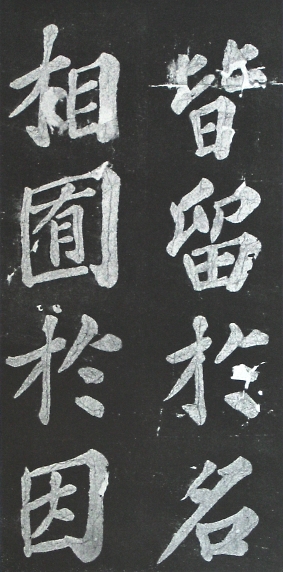 皆留於名
相囿於因